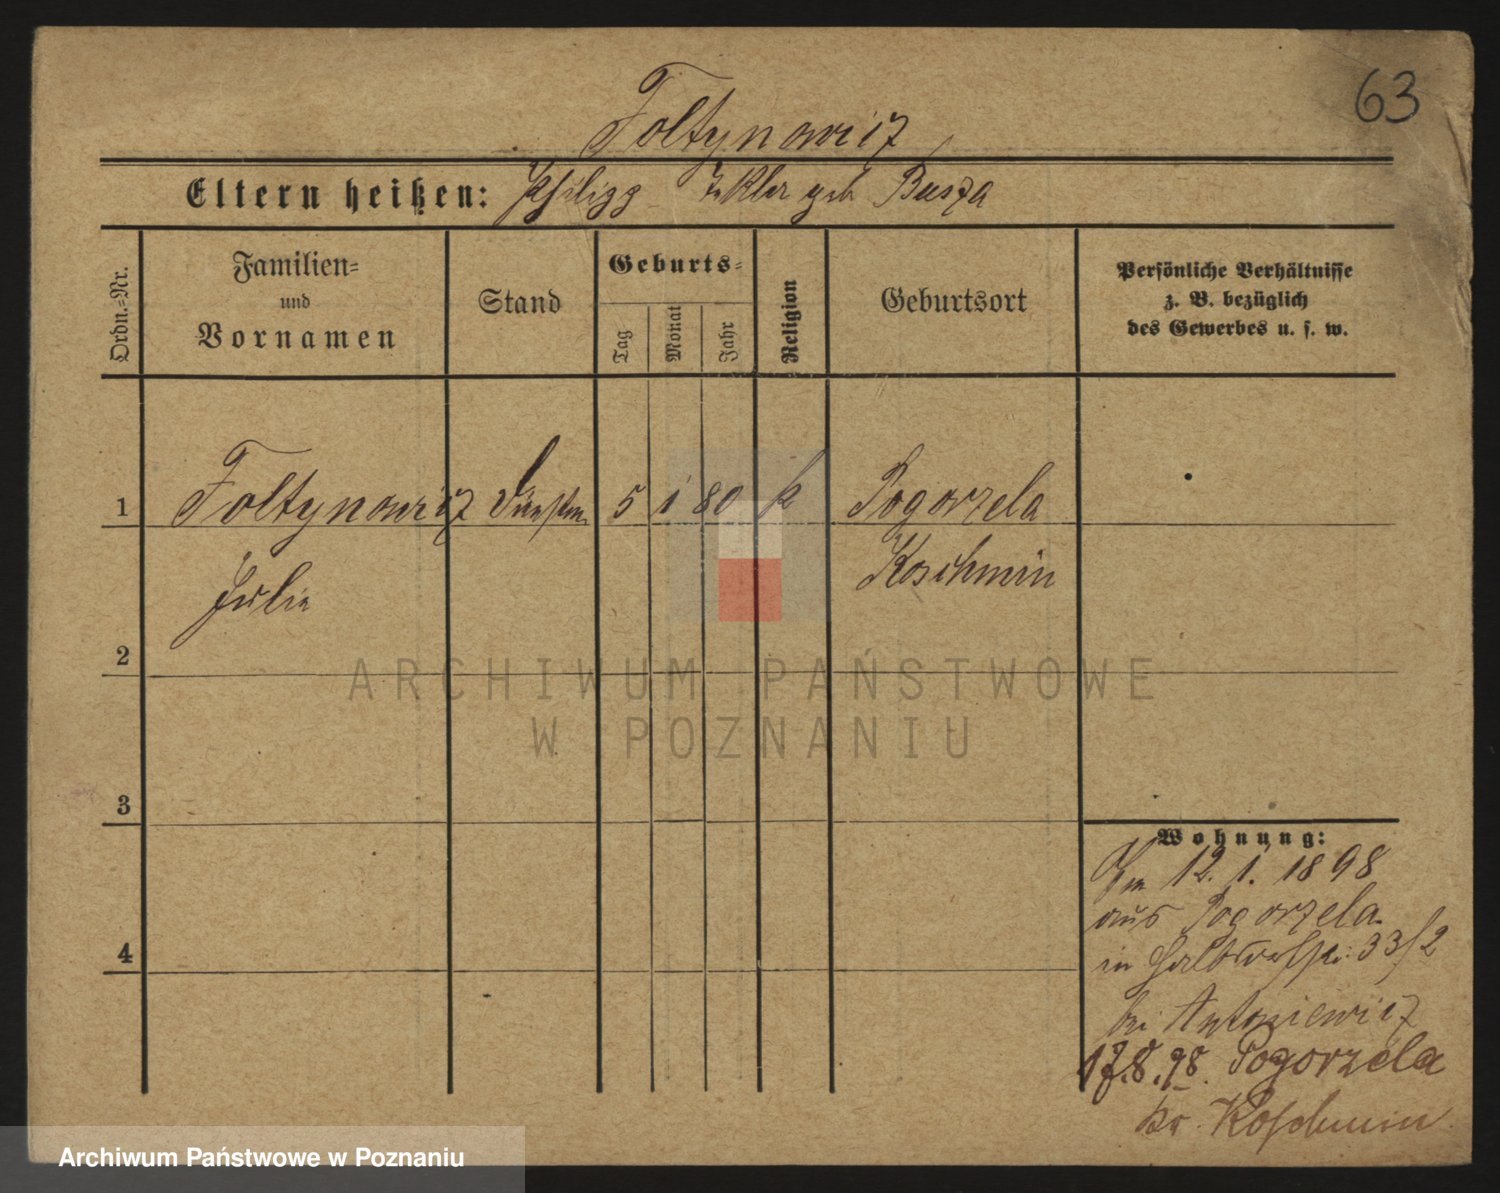 63
Foltynowicz
Eltern heißen: Philipp Thekla geb Busza
Ordn.-Nr.
Familien-
und
Vornamen
Stand
Geburts-
Tag
Monat
Jahr
Religion
Geburtsort
Persönliche Verhältnisse
z. B. bezüglich
des Gewerbes u. s. w.
1 Foltynowicz 5 1 80 k Pogorzela
Koschmin
Julie
2
ARCHIWUM PAŃSTWOWE
W POZNANIU
3
Wohnung:
12. 1. 1898
aus Pogorzela
4
in 33/2
bei Antoniewicz
17.8.98. Pogorzela
Kr. Koschmin
Archiwum Państwowe w Poznaniu